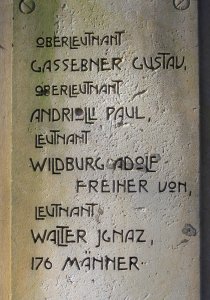 OBERLEUTNANT
GASSEBNER GUSTAV,
OBERLEUTNANT
ANDRIOLLI PAUL,
LEUTNANT
WILDBURG ADOLF
FREIHER VON,
LEUTNANT
WALTER JGNAZ,
176 MÄNNER.